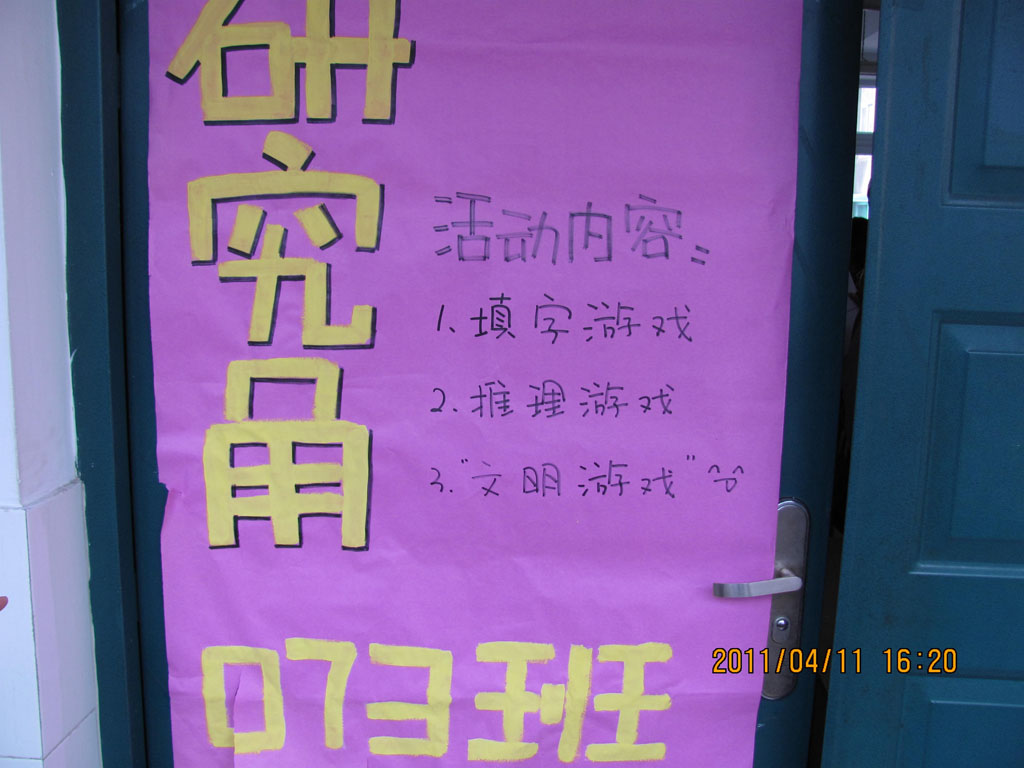 研究角
活动内容:
1.填字游戏
2.推理游戏
3."文明游戏"^^
073班
2011/04/11 16:20